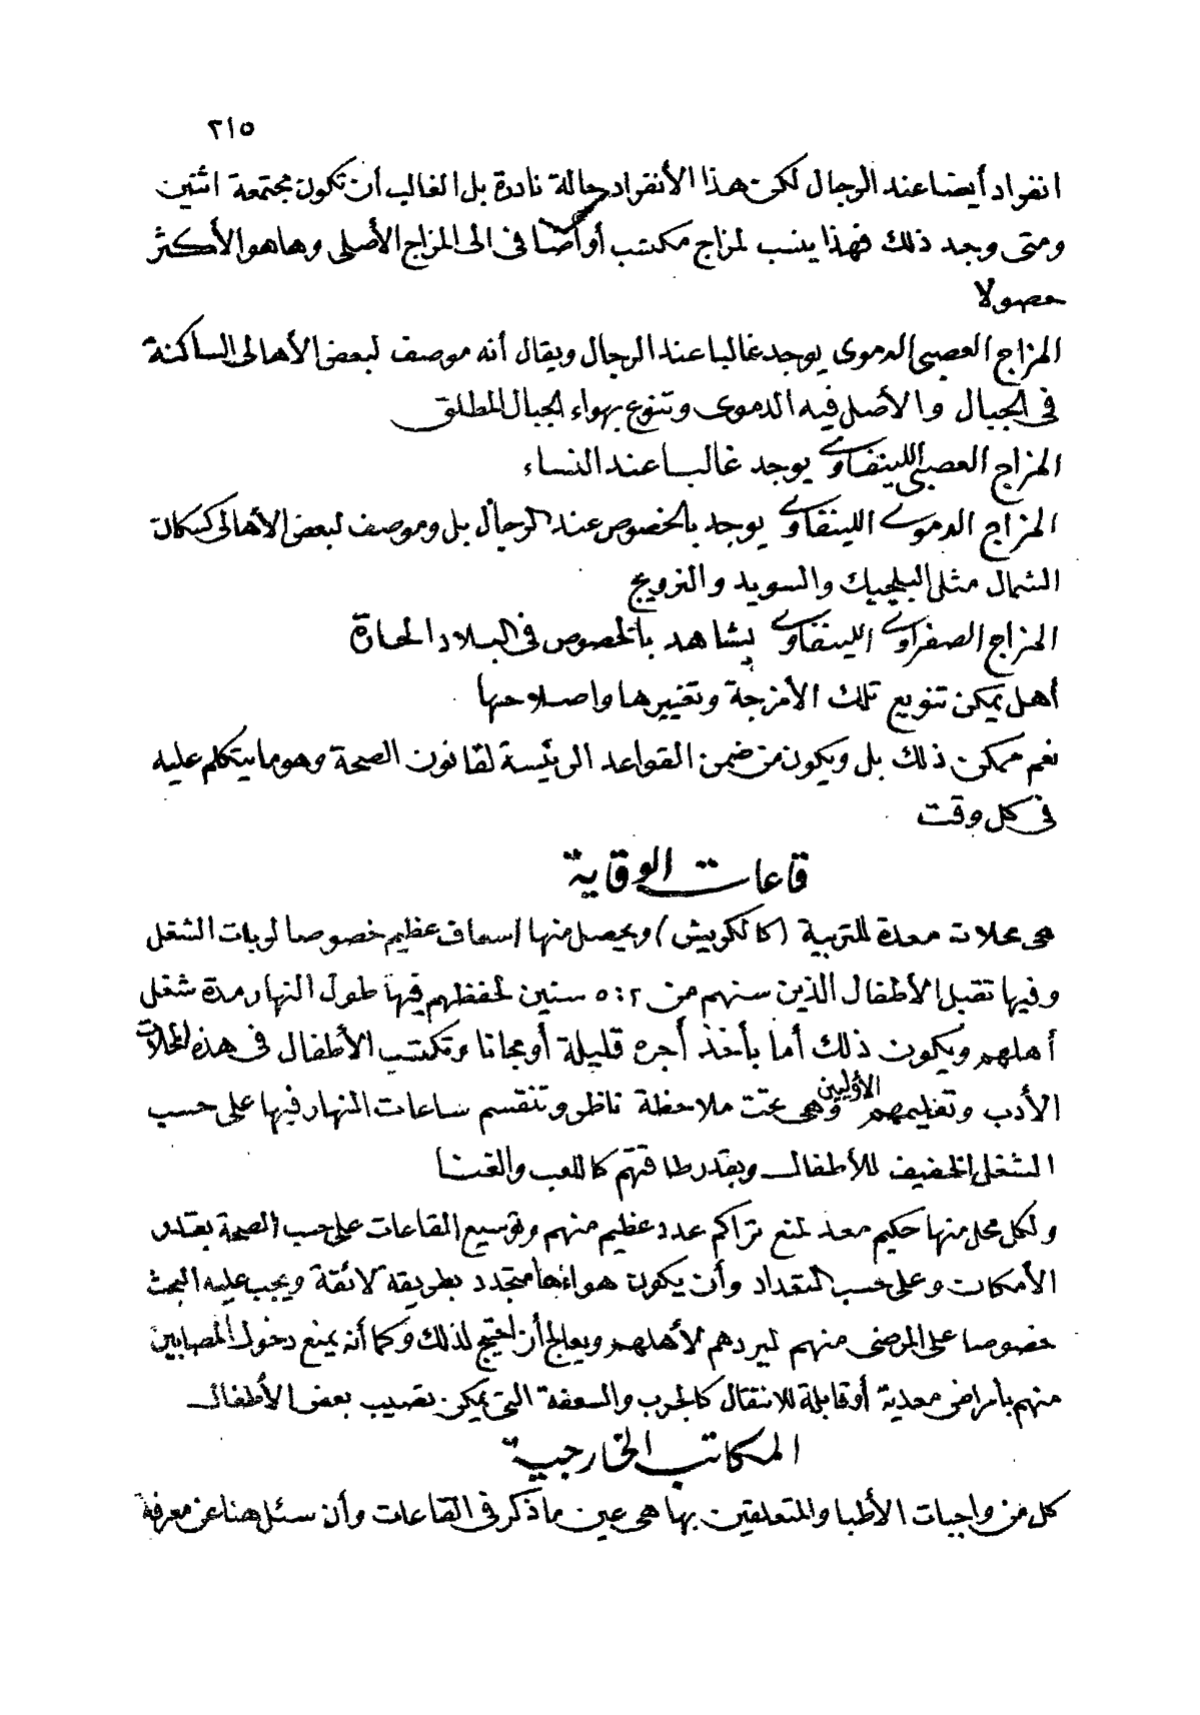 ٢١٥
انفراد أيضا عند الرجال لكن هذا الأنفراد حالة نادرة بل الغالب أن تكون مجتمعة اثنين
ومتى وجد ذلك فهذا ينسب لمزاج مكتسب أو أضافى الى المزاج الأصلى وها هو الأكثر
حصولا
المزاج العصبى الدموى يوجد غالبا عند الرجال ويقال أنه موصف لبعض الأهالى الساكنة
فى الجبال والأصل فيه الدموى وتنوع بهواء الجبال المطلق
المزاج العصبى اللينفاوى يوجد غالبا عند النساء
المزاج الدموى اللينفاوى يوجد بالخصوص عند الرجال بل وموصف لبعض الأهالى كسكان
الشمال مثل البلجيك والسويد والنرويج
المزاج الصفراوى اللينفاوى يشاهد بالخصوص فى البلاد الحارة
أهل يمكن تنويع تلك الأمزجة وتغييرها واصلاحها
نعم ممكن ذلك بل ويكون من ضمن القواعد الرئيسة لقانون الصحة وهو ما يتكلم عليه
فى كل وقت
قاعات الوقاية
هى محلات معدة للتربية (كالكريش) ويحصل منها اسعاف عظيم خصوصا لربات الشغل
وفيها تقبل الأطفال الذين سنهم من ٢ : ٥ سنين لحفظهم فيها طول النهار مدة شغل
أهلهم ويكون ذلك أما بأخذ أجره قليلة أو مجانا وتكتسب الأطفال فى هذه المحلات
الأدب وتعليمهم الأوليين وهى تحت ملاحظة ناظر وتنقسم ساعات النهار فيها على حسب
الشغل الخفيف للأطفال وبقدر طاقتهم كاللعب والغنا
ولكل محل منها حكيم معد لمنع تراكم عدد عظيم منهم وتوسيع القاعات على حسب الصحة بقدر
الأمكان وعلى حسب التعداد وأن يكون هواءها متجدد بطريقة لائقة ويجب عليه البحث
خصوصا على المرضى منهم ليردهم لأهلهم ويعالج أن احتيج لذلك وكما أنه يمنع دخول المصابين
منهم بأمراض معدية أو قابلة للانتقال كالجرب والسعفة التى يمكن تصيب بعض الأطفال
المكاتب الخارجية
كل من واجبات الأطبا والمتعلقين بها هى عين ما ذكر فى القاعات وأن سئل هنا عن معرفة